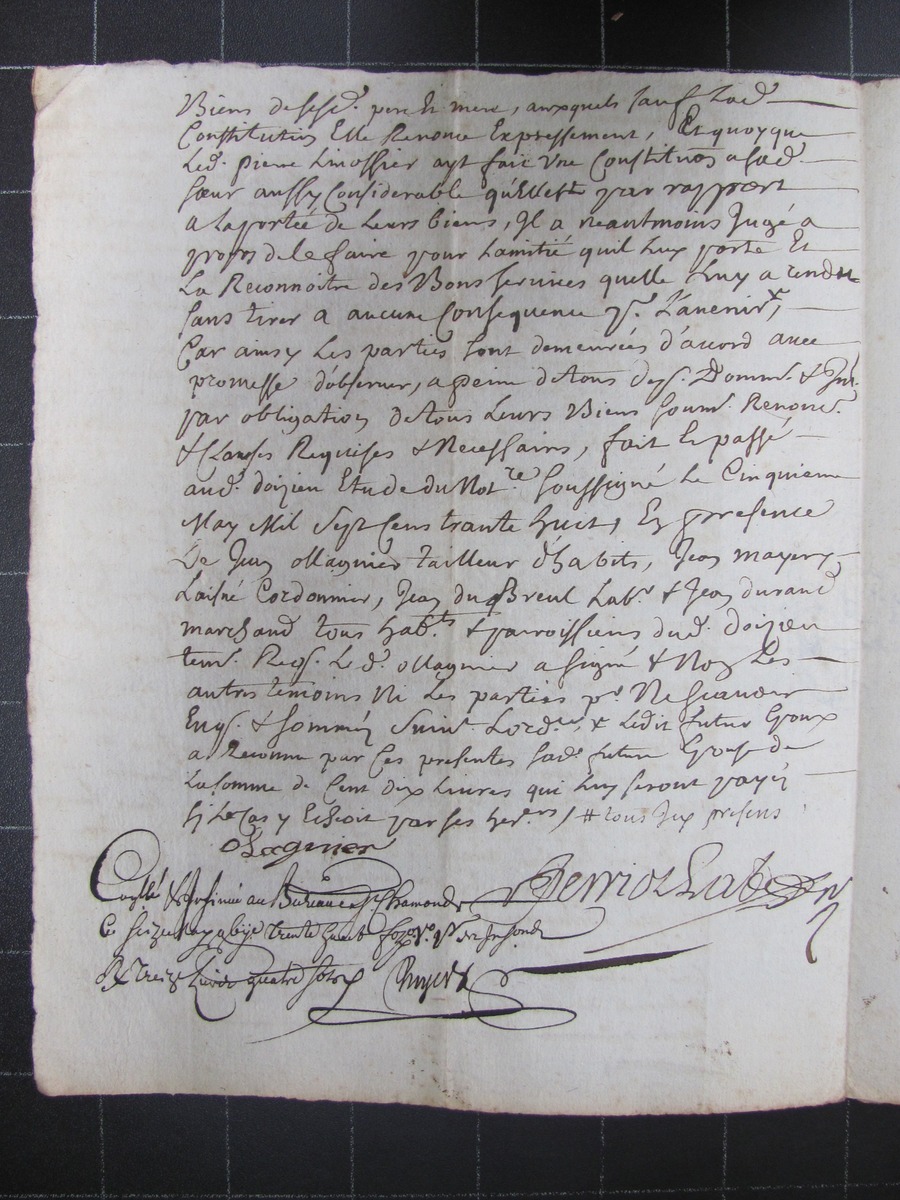 Biens de sesd. pere et mere, auxquels sauf lad.
Constitution Elle Renonce Expressement, Et quoyque
Led. pierre Limossier ayt fait Une Constitution a sad.
sœur aussy Considerable qu'Elle est par rapport
a La portée de Leurs biens, Il a neantmoins Jugé a
propos de le faire pour Lamitié quil Luy porte Et
La Reconnoitre des Bons services quelle Luy a rendu
sans tirer a aucune Consequence pr. L'avenir,
Car ainsy Les parties sont demeurées d'acord avec
promesse d'observer, a peine de tous desp. Domm. & Int.
par obligation de tous Leurs Biens soum. Renonc.
& Clauses Requises & Necessaires, fait Et passé
aud. doizieu Etude du Not.re soussigné Le Cinquieme
May Mil Sept Cens trante huit, En presence
De Jean ollagnier tailleur d'habits, Jean mayery
Laisné Cordonnier, Jean du Breul Labr. & Jean durand
marchand tous hab.ts & parroissiens dud. doizieu
tem. Reqs. Led. ollagnier a signé & Non Les
autres temoins Ni Les parties pr. Ne scavoir
Enqs. & sommés suiv. Lord.ce, & Ledit futur Epoux
a Reconnu par Ces presentes sad. future Epouse de
La somme de Cent dix Livres qui Luy seront payés
si Le Cas y Echeoit par ses her.ers / # tous Jeux presens
Olagnier
Conllé & Insinué au Bureau de St Chamond
Ce seize may trente huit
treize Livres quatre sols